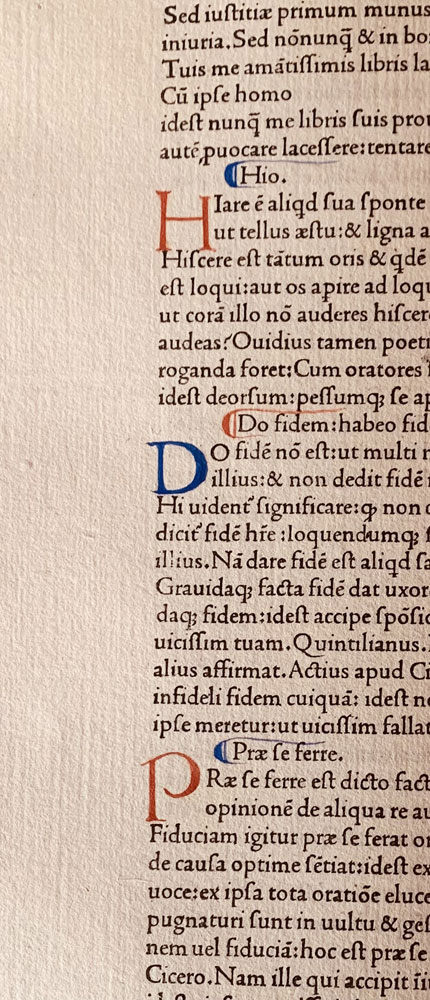 Sed iuſtitiæ primum munus
iniuria.Sed nõnunq̃ & in bo
Tuis me amãtiſſimis libris la
Cũ ipſe homo
ideſt nunq̃ me libris ſuis prou
autẽ ꝓuocare laceſſere:tentare
Hio.
HIare ē aliqd ſua ſponte
ut tellus æſtu:& ligna a
Hiſcere eſt tãtum oris & qdē
eſt loqui:aut os apire ad loqu
ut corã illo nõ auderes hiſcer
audeas?Ouidius tamen poeti
roganda foret:Cum oratores
ideſt deorſum:peſſumq; ſe ap
Do fidem:habeo fid
DO fidē nõ eſt:ut multi
illius:& non dedit fidē
Hi uident̃ ſignificare:ꝙ non
dicit̃ fidē hr̃e :loquendumq;
illius.Nã dare fidē eſt aliqd ſa
Grauidaq; facta fidē dat uxor
daq; fidem:ideſt accipe ſpõſio
uiciſſim tuam.Quintilianus.
alius affirmat.Actius apud Ci
infideli fidem cuiquã: ideſt n
ipſe meretur:ut uiciſſim fallat
Præ ſe ferre.
PRæ ſe ferre eſt dicto fact
opinionē de aliqua re au
Fiduciam igitur præ ſe ferat or
de cauſa optime ſẽtiat:ideſt ex
uoce:ex ipſa tota oratiõe eluce
pugnaturi ſunt in uultu & geſ
nem uel fiduciã:hoc eſt præ ſe
Cicero.Nam ille qui accipit iĩ